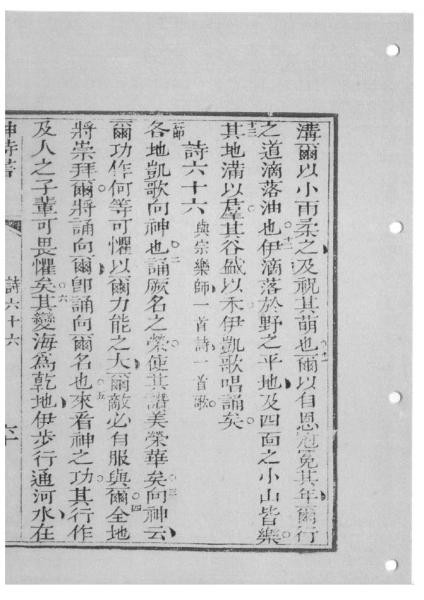 溝爾以小雨柔之及祝其萌也十一爾以自恩冠冕其年爾行
之道滴落油也十二伊滴落於野之平地及四面之小山皆樂
十三其地滿以羣其谷盛以禾伊凱歌唱誦矣
詩六十六 與宗樂師一首詩一首歌
一節各地凱歌向神也二誦厥名之榮使其譜美榮華矣三向神云
爾功作何等可懼以爾力能之大爾敵必自服與爾四全地
將崇拜爾將誦向爾卽誦向爾名也五來看神之功其行作
及人之子輩可畏懼矣六其變海為乾地伊步行通河水在
神詩書 詩六十六